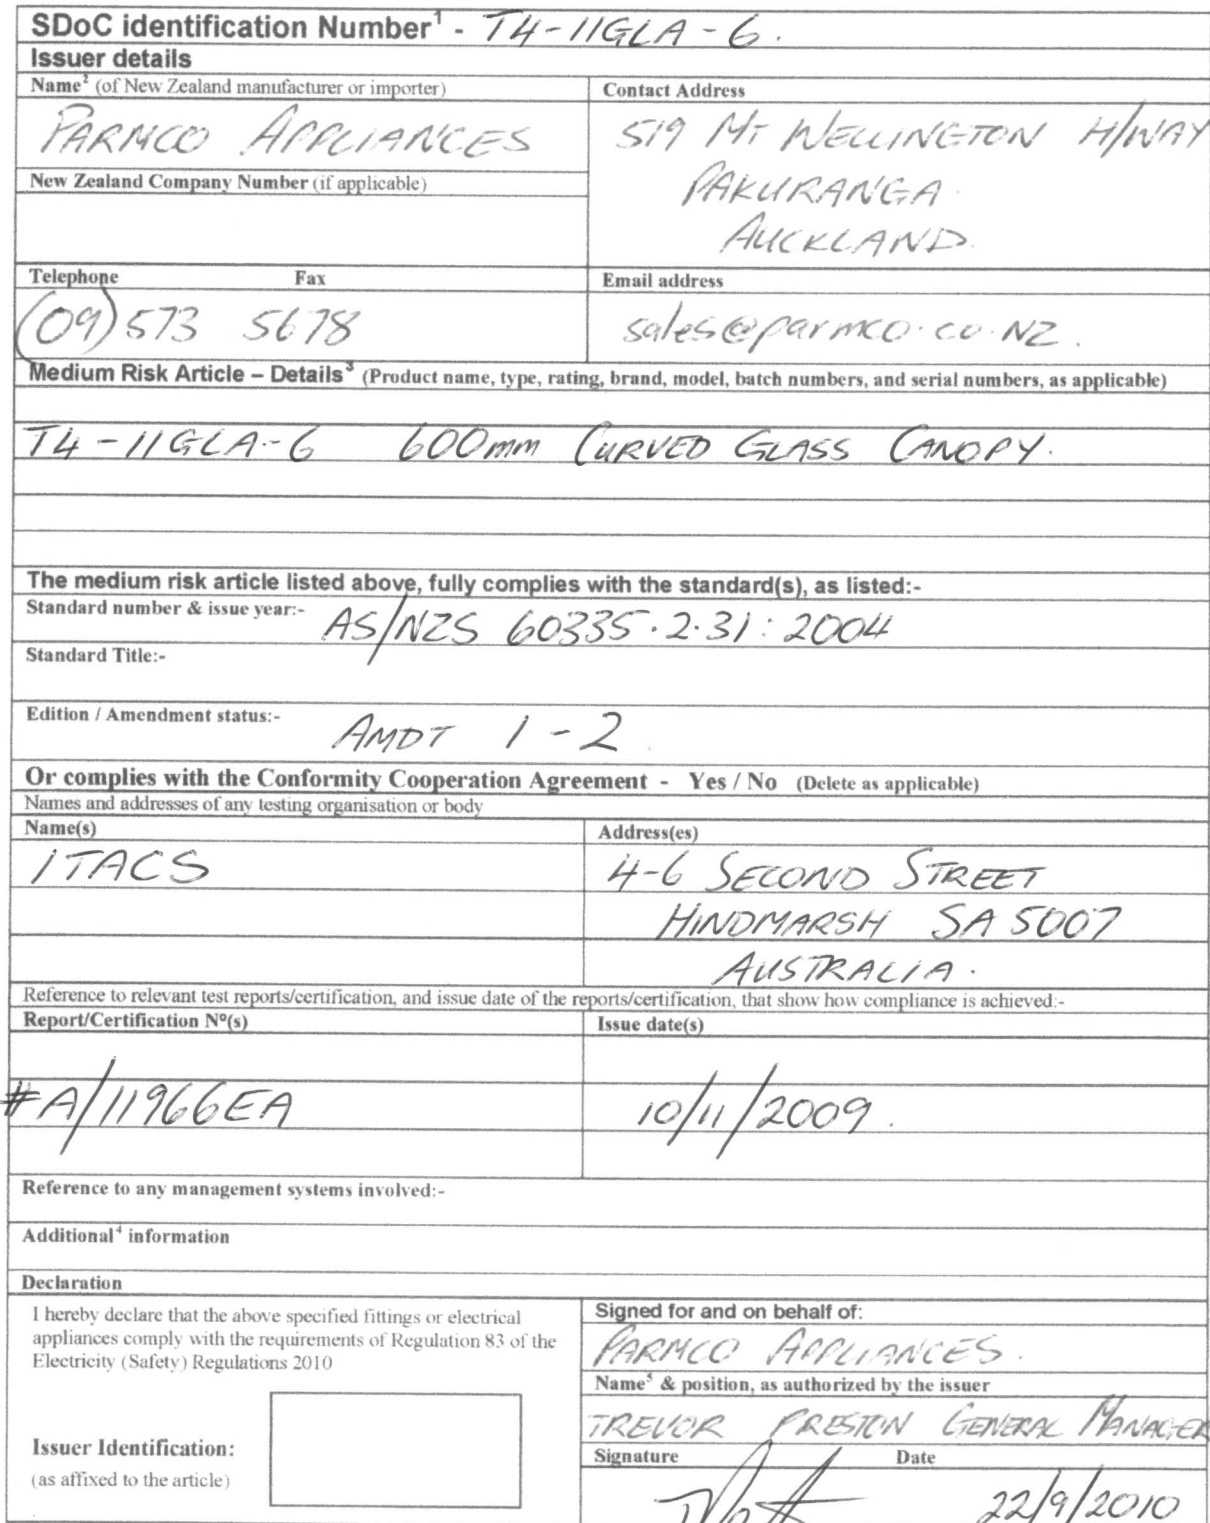 SDoC identification Number¹ - T4-11GLA-6.
Issuer details
Name² (of New Zealand manufacturer or importer)
PARMCO APPLIANCES
New Zealand Company Number (if applicable)
Contact Address
519 MT WELLINGTON H/WAY
PAKURANGA.
AUCKLAND.
Telephone Fax
(09) 573 5678
Email address
sales@parmco.co.NZ.
Medium Risk Article – Details³ (Product name, type, rating, brand, model, batch numbers, and serial numbers, as applicable)
T4-11GLA-6 600mm CURVED GLASS CANOPY.
The medium risk article listed above, fully complies with the standard(s), as listed:-
Standard number & issue year:- AS/NZS 60335.2.31:2004
Standard Title:-
Edition / Amendment status:- AMDT 1-2
Or complies with the Conformity Cooperation Agreement - Yes / No (Delete as applicable)
Names and addresses of any testing organisation or body
Name(s)
ITACS
Address(es)
4-6 SECOND STREET
HINDMARSH SA 5007
AUSTRALIA.
Reference to relevant test reports/certification, and issue date of the reports/certification, that show how compliance is achieved:-
Report/Certification Nº(s)
#A/11966EA
Issue date(s)
10/11/2009.
Reference to any management systems involved:-
Additional⁴ information
Declaration
I hereby declare that the above specified fittings or electrical
appliances comply with the requirements of Regulation 83 of the
Electricity (Safety) Regulations 2010
Issuer Identification:
(as affixed to the article)
Signed for and on behalf of:
PARMCO APPLIANCES.
Name⁵ & position, as authorized by the issuer
TREVOR PRESTON GENERAL MANAGER
Signature Date
22/9/2010